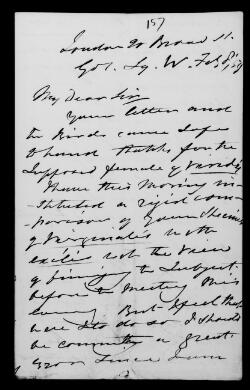 157
London 20 Broad St.
Gol. Sq. W. Feb
My Dear Sir
Your letter and
the Birds came safe
to hand thanks for the
supposed female of
I have this morning in-
stituted a rigid com-
parison of your specimen
of with
exilis with the view
of bringing the subject
before the meeting this
evening But I feel that
were I to do so I should
be committing a great
error since I am